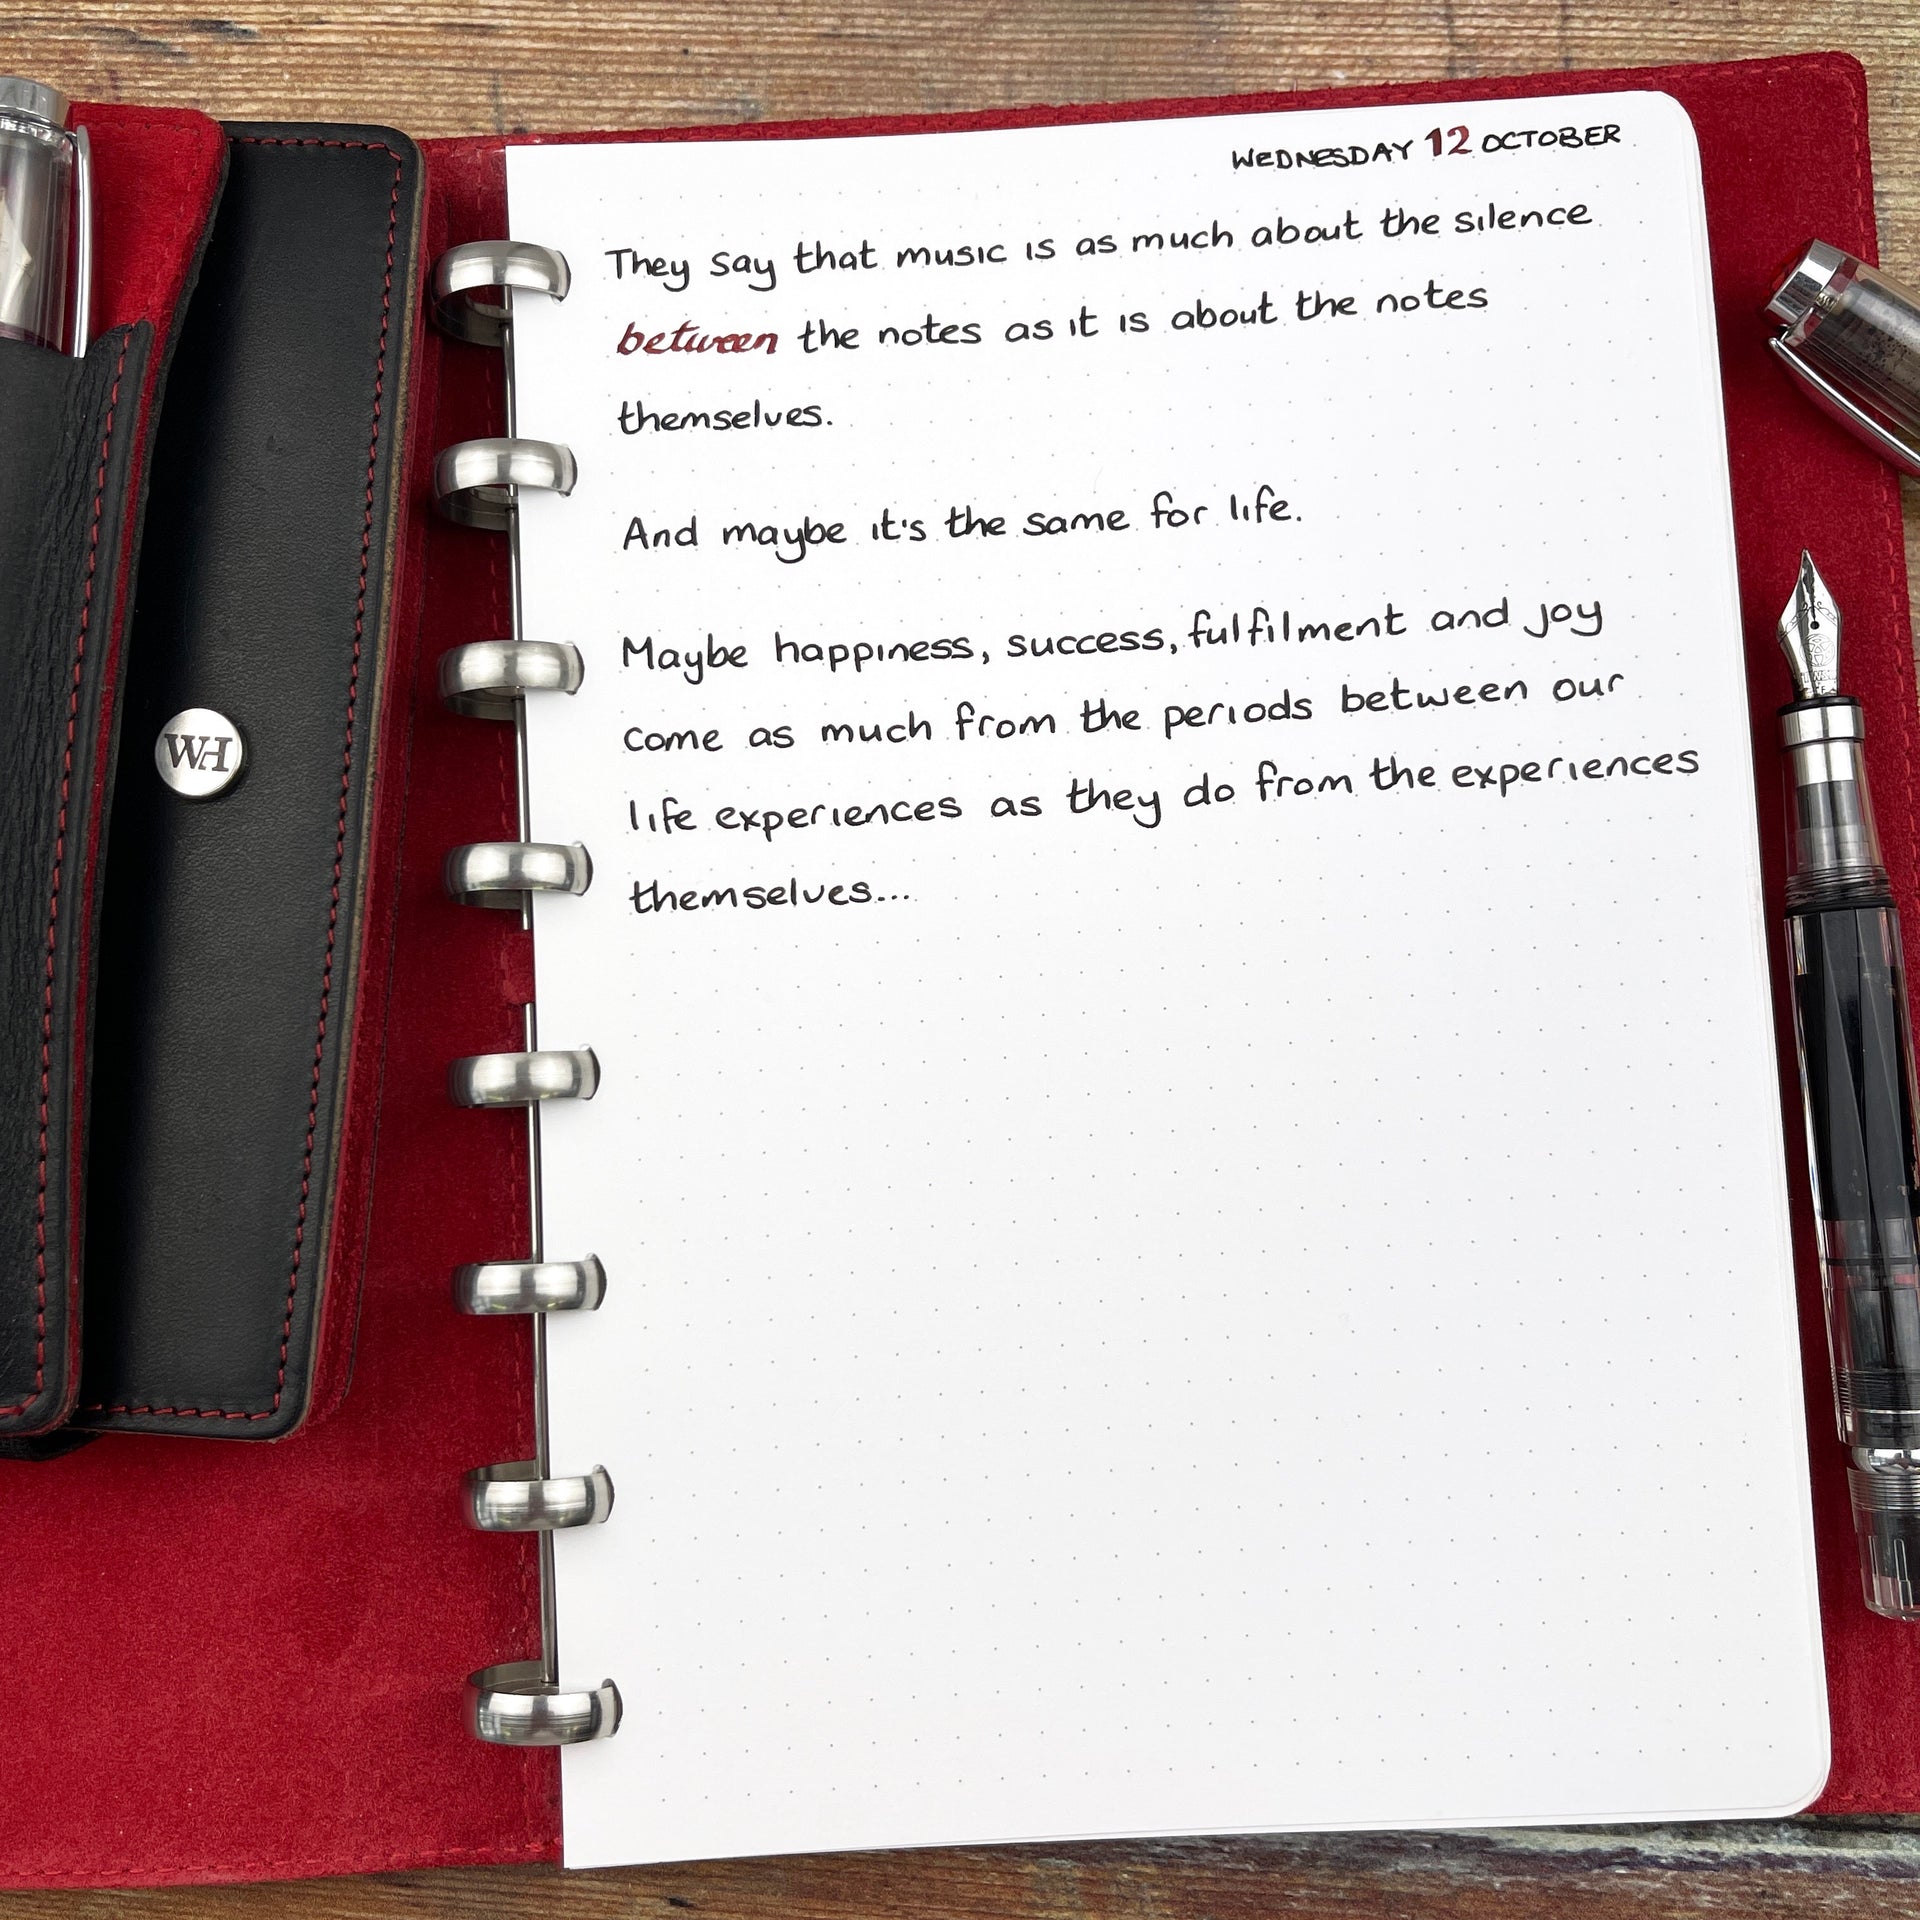 WEDNESDAY 12 OCTOBER
They say that music is as much about the silence
between the notes as it is about the notes
themselves.
And maybe it's the same for life.
Maybe happiness, success, fulfilment and joy
come as much from the periods between our
life experiences as they do from the experiences
themselves...
WH